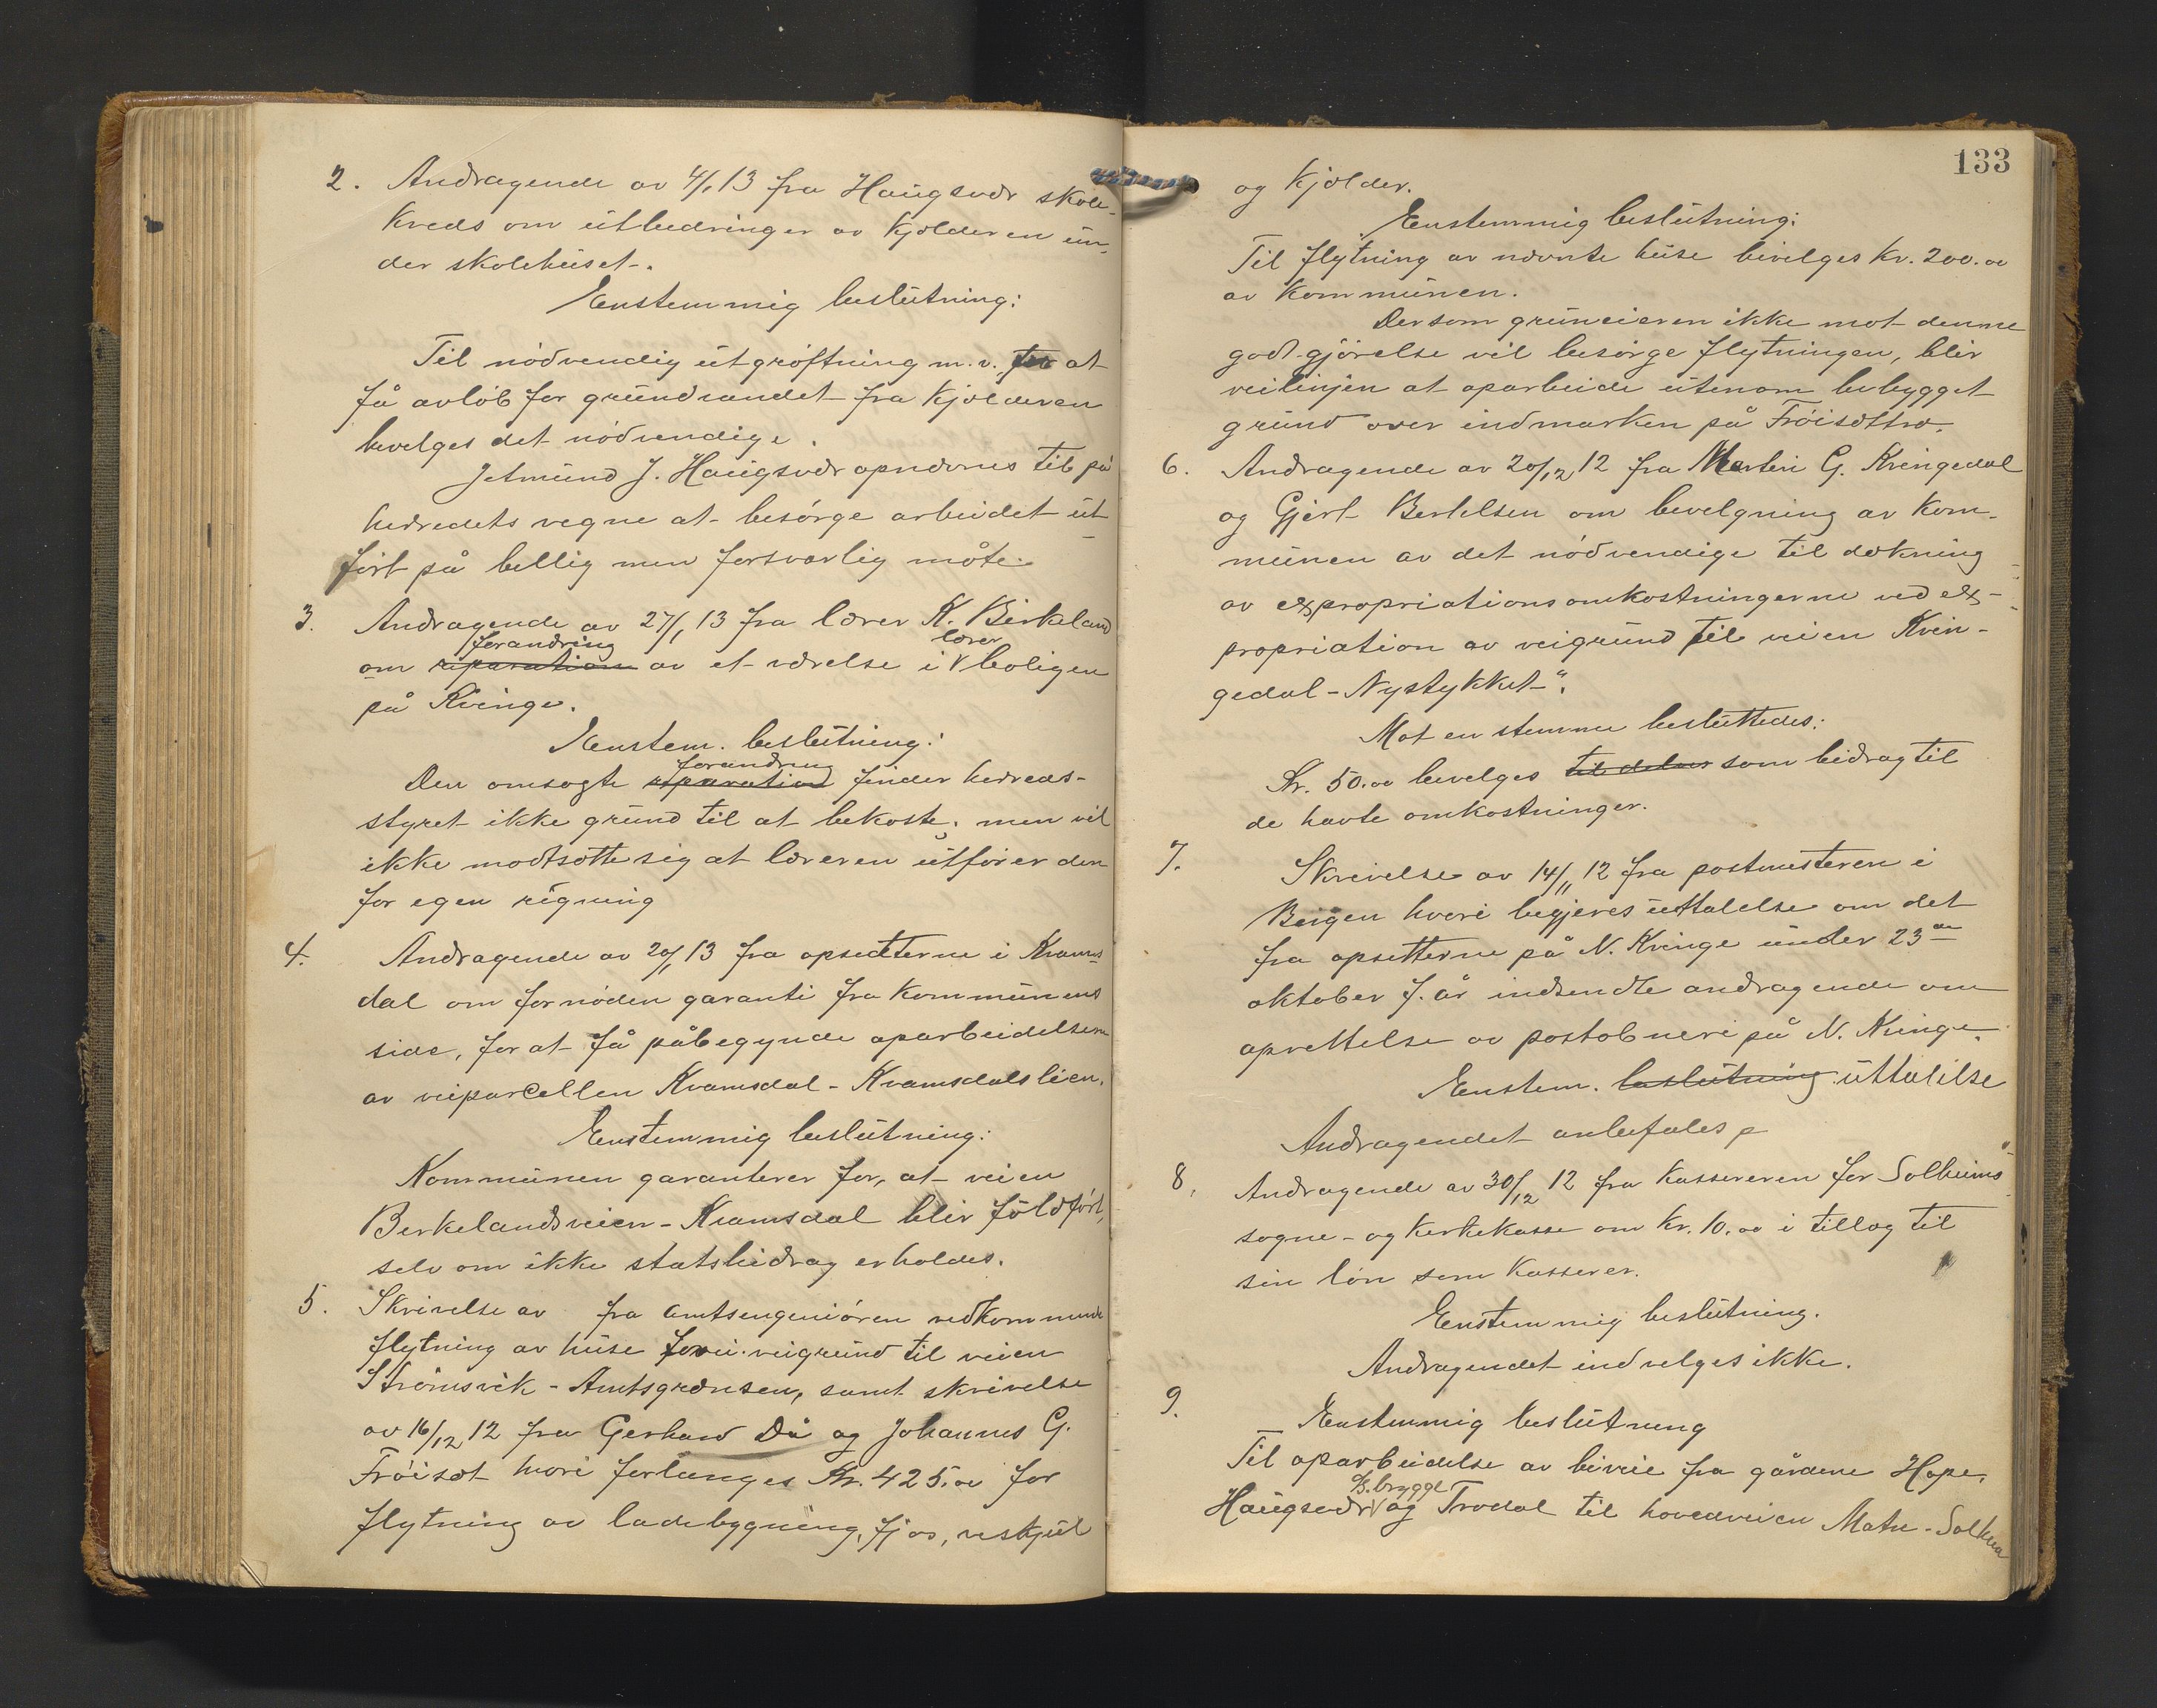 2. Andragende av 4/1 13 fra Haugsvær skole-
kreds om utbedringer av kjælderen un-
der skolehuset.
Enstemmig beslutning:
Til nödvendig utgröftning m.v. for at
få avlöb for grundvandet fra kjælderen
bevelges det nödvendige.
Jetmund J. Haugsvær opnævnes til på
herredets vegne at besörge arbeidet ut-
fört på billig men forsvarlig måte.
3. Andragende av 27/1 13 fra lærer K. Birkeland
forandring lærer
om reparation av et værelse i boligen
på Kvinge.
Enstem. beslutning:
forandring
Den omsøgte reparation finder herreds-
styret ikke grund til at bekoste; men vil
ikke modsætte sig at læreren utförer den
for egen regning
4. Andragende av 20/1 13 fra opsætterne i Kvams-
dal om fornøden garanti fra kommunens
side, for at få påbegynde oparbeidelsen
av veiparcellen Kvamsdal - Kvamsdalslien.
Enstemmig beslutning:
Kommunen garanterer for, at veien
Birkelandsveien - Kvamsdal blir fuldfört,
selv om ikke statsbidrag erholdes.
5. Skrivelse av fra amtsengeniören vedkommende
flytning av huse veigrund til veien
Strömsvik - Amtsgrænsen, samt skrivelse
av 16/12 12 fra Gerhard Då og Johannes G.
Fröiset hvori forlanges Kr. 425.oo for
flytning av ladebygning, fjøs, veskjul
133
og kjælder.
Enstemmig beslutning:
Til flytning av nævnte huse bevilges kr. 200.oo
av kommunen.
Dersom gruneieren ikke mot denne
godtgjörelse vil besörge flytningen, blir
veilinjen at oparbeide utenom bebygget
grund over indmarken på Fröisættre.
6. Andragende av 20/12 12 fra Martin G. Kvingedal
og Gjert Bertelsen om bevelgning av kom-
munen av det nödvendige til dækning
av expropriationsomkostningerne ved ex-
propriation av veigrund til veien Kvin-
gedal - Nystykket".
Mot en stemme besluttedes:
Kr. 50.oo bevelges til delvis som bidrag til
de havte omkostninger.
7. Skrivelse av 14/11 12 fra postmesteren i
Bergen hvori begjeres uttalelse om det
fra opsetterne på N. Kvinge under 23de
oktober f. år indsendte andragende om
oprettelse av postobneri på N. Kvinge.
Enstem. beslutning uttalelse
Andragendet anbefales
8. Andragende av 30/12 12 fra kassereren for Solheims
sogne- og kirkekasse om kr. 10.oo i tillæg til
sin lön som kasserer.
Enstemmig beslutning.
Andragendet indvelges ikke.
9. Enstemmig beslutning
Til oparbeidelse av biveie fra gårdene Hope,
Ds.brygge
Haugsvær og Trodal til hovedveien Matre - Solheim